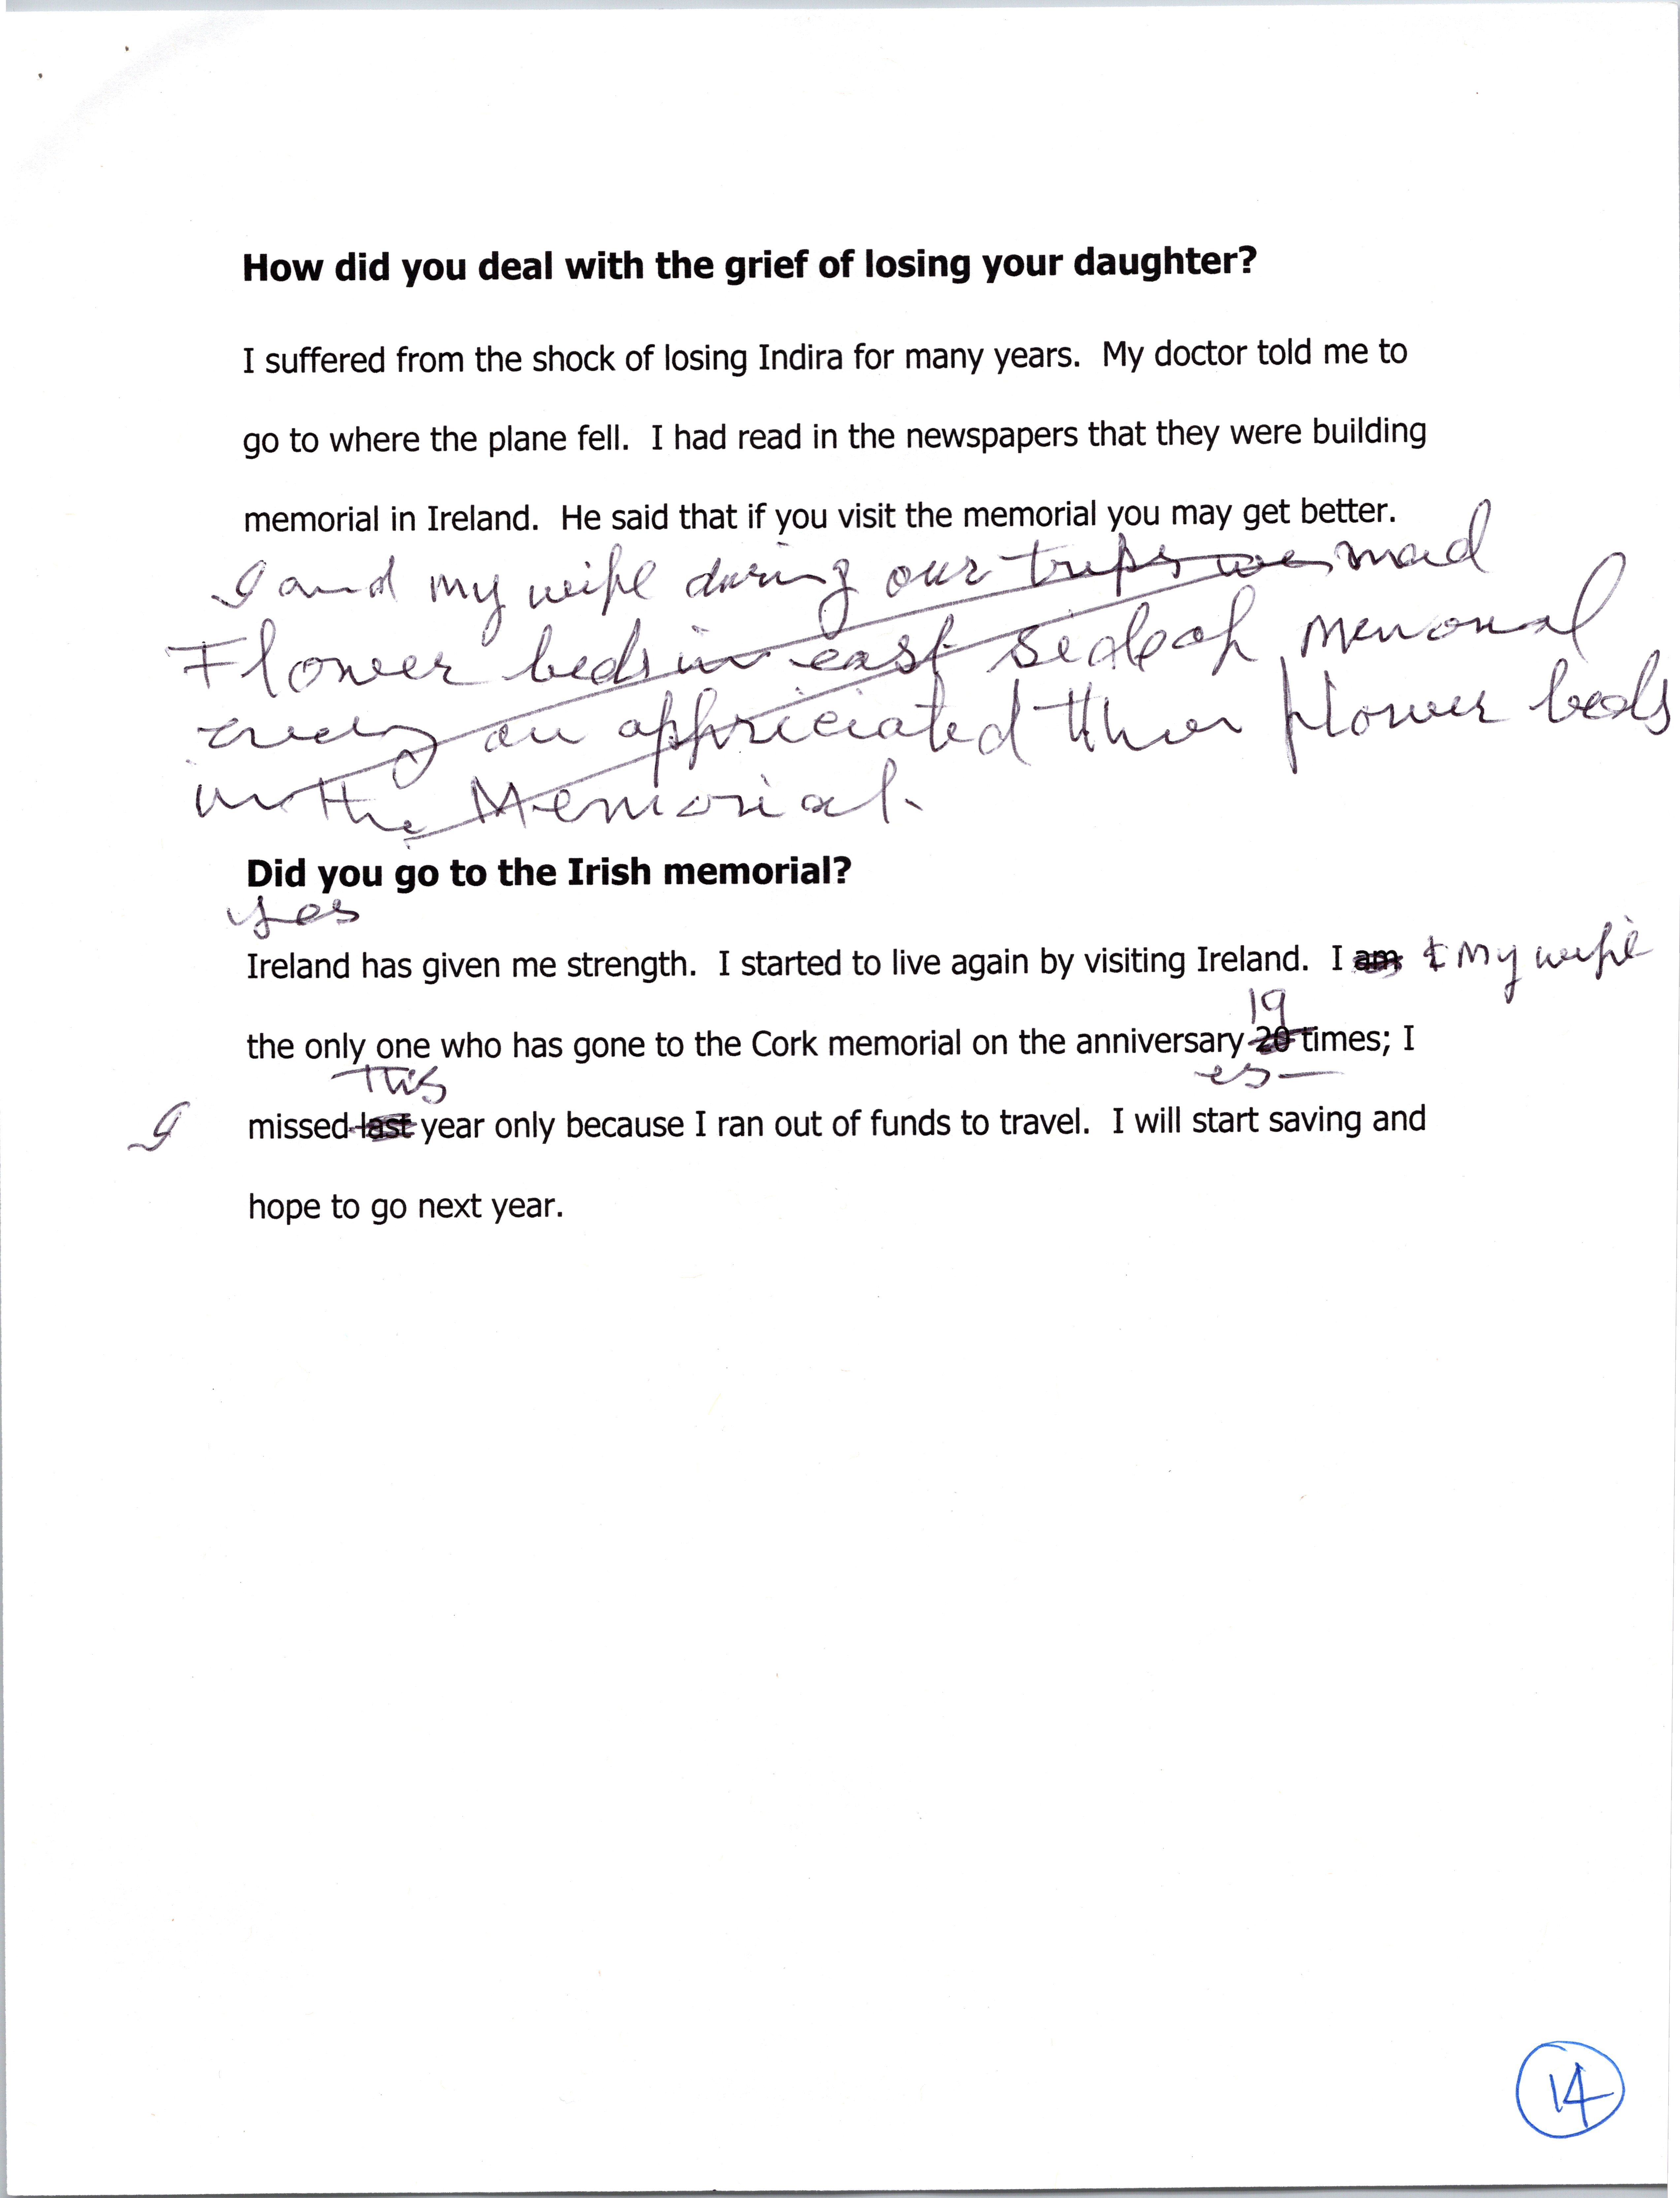 How did you deal with the grief of losing your daughter?
I suffered from the shock of losing Indira for many years. My doctor told me to
go to where the plane fell. I had read in the newspapers that they were building
memorial in Ireland. He said that if you visit the memorial you may get better.
I and my wife during our trips we mad
Flower beds in east side of Memorial
every an appriciated flower beds
in the Memorial.
Did you go to the Irish memorial?
yes
Ireland has given me strength. I started to live again by visiting Ireland. I am & My wife
19
the only one who has gone to the Cork memorial on the anniversary 20 times; I
This es
I missed last year only because I ran out of funds to travel. I will start saving and
hope to go next year.
14